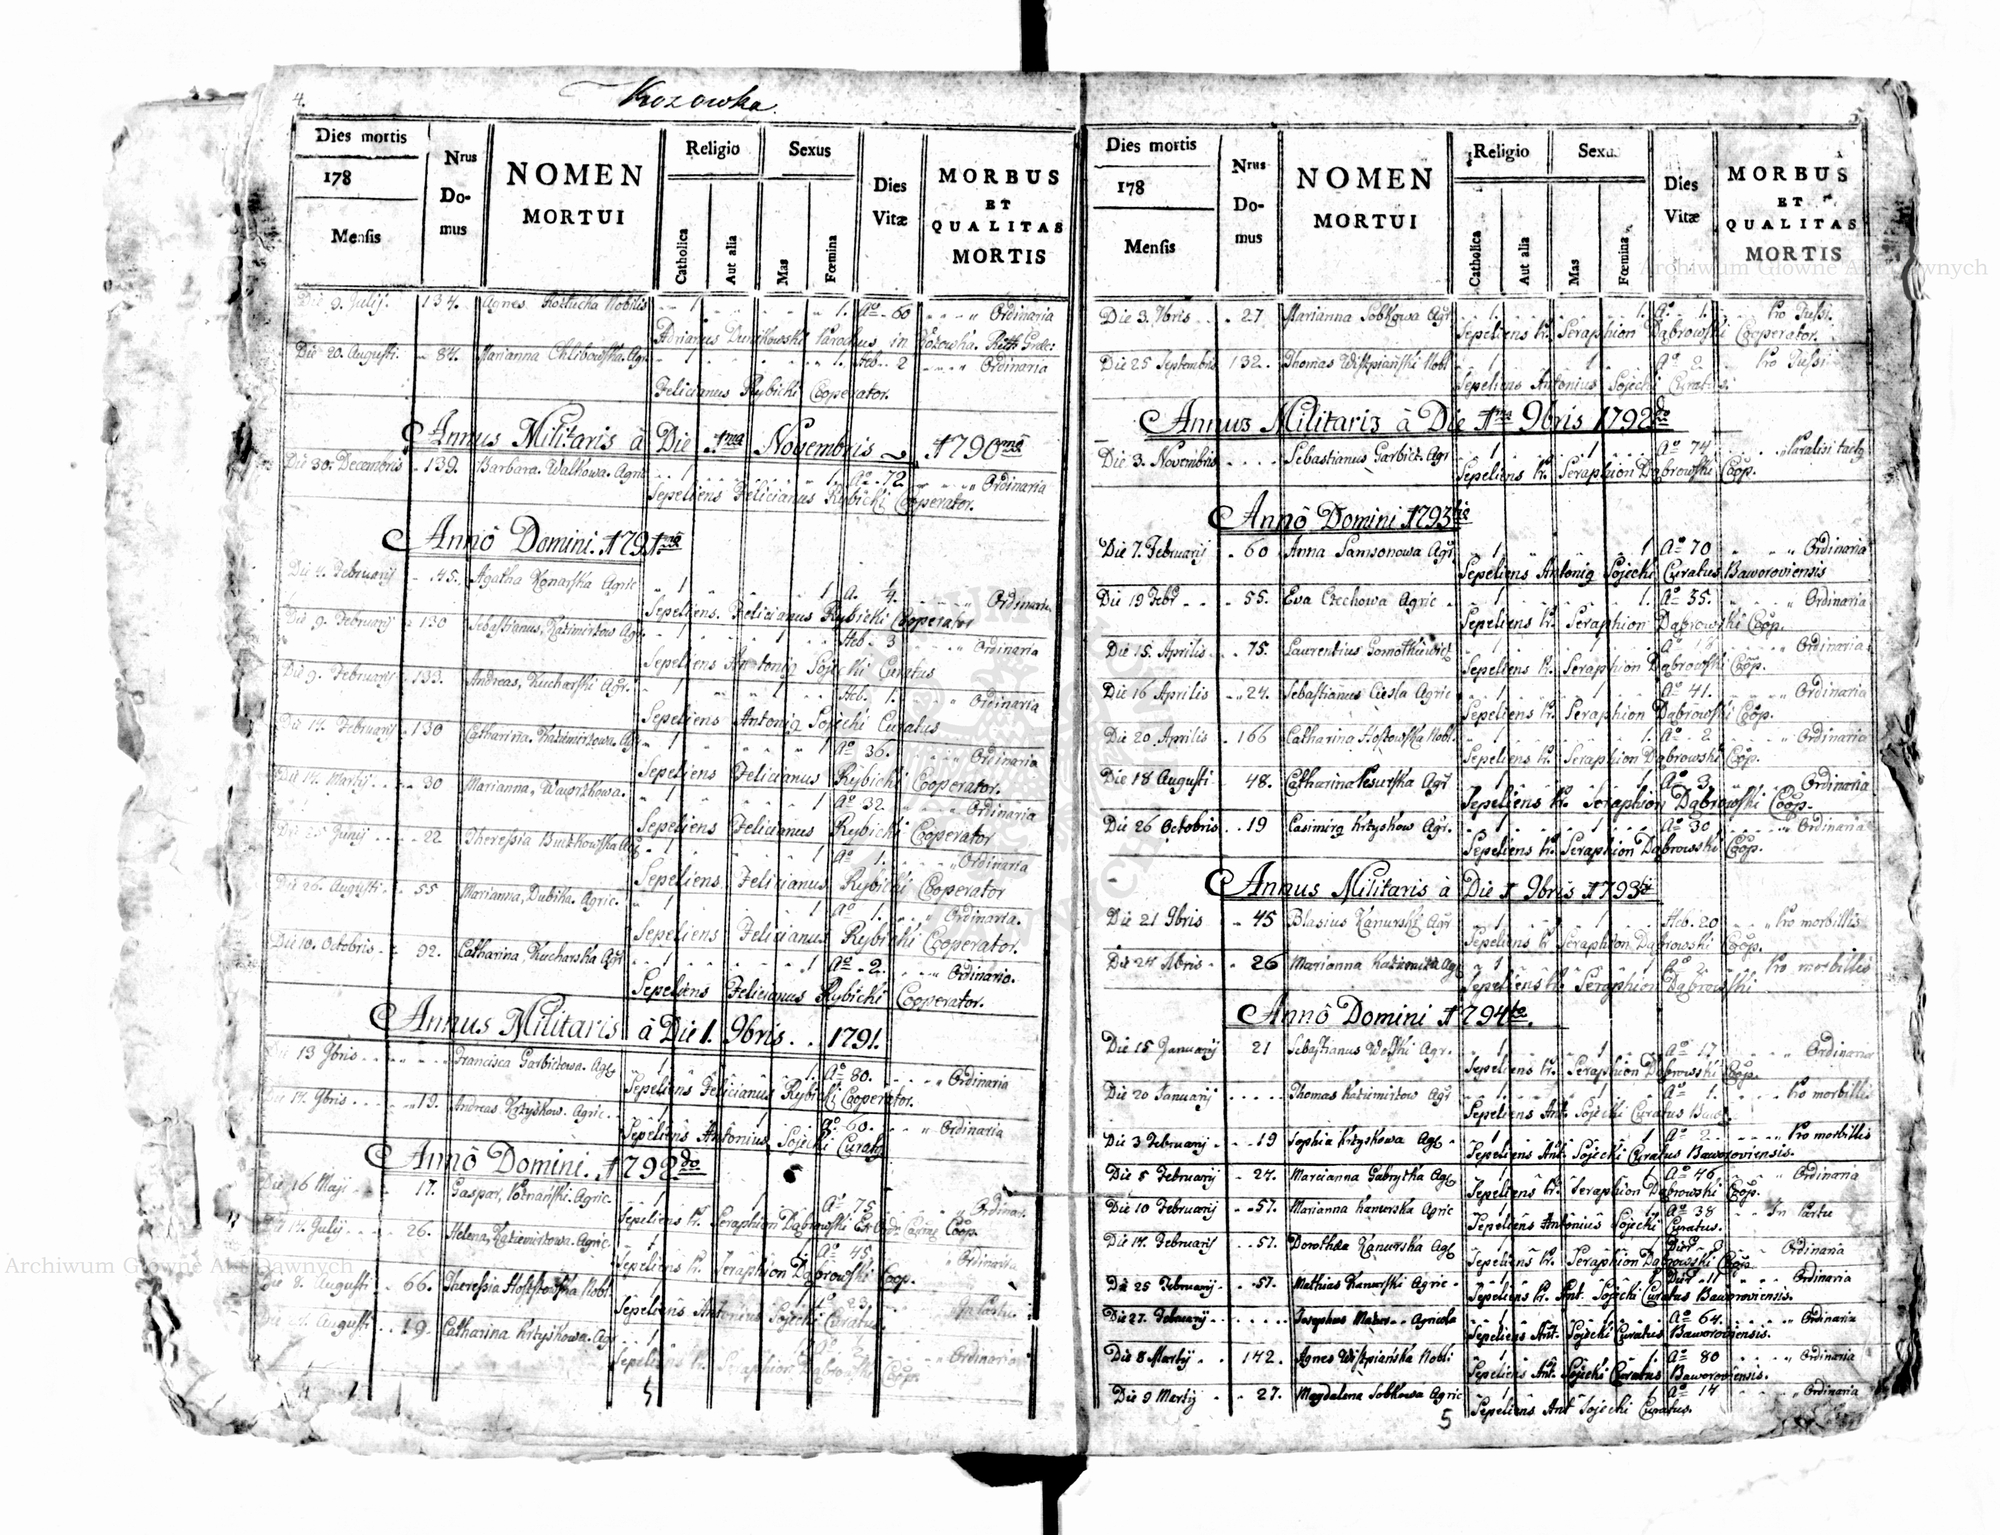 4.
Kozowka.
Dies mortis
178
Mensis
Nrus Domus
NOMEN MORTUI
Religio
Catholica
Aut alia
Sexus
Mas
Fœmina
Dies Vitæ
MORBUS ET QUALITAS MORTIS
Die 9. Julij. 134. Agnes Nobilis 1 1. Aō 60 Ordinaria
Parochus in Kozowka.
Die 20. Augusti. 84. Marianna Chlibowska. Agr. 1. Heb. 2 Ordinaria
Felicianus Rybicki Cooperator.
Annus Militaris à Die 1ma Novembris 1790mô
Die 30. Decembris 139. Barbara. Walkowa. Agric 1 1. Aō 72 Ordinaria
Sepeliens Felicianus Rybicki Cooperator.
Annô Domini. 1791mô
Die 4. Februarij 45. Agatha Konarska Agric 1 1 A. 1/4. Ordinaria
Sepeliens. Felicianus Rybicki Cooperator
Die 9. Februarij 130 Sebastianus, Kazimirtow Agr. 1 1 Heb. 3 Ordinaria
Sepeliens Antonig Sojecki Curatus
Die 9. Februarij 133. Andreas, Kucharski Agr. 1 1 Heb. 1. Ordinaria
Sepeliens Antonig Sojecki Curatus
Die 14. Februarij 130 Catharina. Kazimirtowa. Agr 1 1 Aō 36. Ordinaria
Sepeliens Felicianus Rybicki Cooperator.
Die 14. Martij 30 Marianna, Wawrzkowa. 1 1 Aō 32 Ordinaria
Sepeliens Felicianus Rybicki Cooperator
Junij 22 Theressia 1 1 Aō 1. Ordinaria
Sepeliens. Felicianus Rybicki Cooperator
Die 26. Augusti. 55 Marianna, Dubika. Agric. 1 1 Aō 1. Ordinaria.
Sepeliens Felicianus Rybicki Cooperator.
Die 10. Octobris 92. Catharina Kucharska Agr 1 1 Aō 2. Ordinaria.
Sepeliens Felicianus Rybicki Cooperator.
Annus Militaris à Die 1. 9bris. 1791.
Die 13 9bris Francisca Garbickowa. Agr 1 1. Aō 80. Ordinaria
Sepeliens Felicianus Rybicki Cooperator.
14. 9bris. 19. Andreas Krzyskow. Agric. 1 1 Aō 60. Ordinaria
Sepeliens Antonius Sojecki Curatg
Annô Domini. 1792do
Die 16 Maji 17. Gaspar, Poznański. Agric. 1 1 Aō 75 Ordinar.
Sepeliens Fr. Seraphion Dąbrowski Coop.
14. Julij 26. Helena, Kazimirtowa. Agric. 1 1 Aō 45. Ordinaria
Sepeliens Fr. Seraphion Dąbrowski Coop.
Die 8. Augusti 66. Theressia Nobl. 1 Aō 23
Sepeliens Antonius Sojecki Curatus.
Augusti 19. Catharina Krzyskowa. Agr 1 Ordinaria
Sepeliens Fr. Seraphion Dąbrowski Coop.
5
Dies mortis
178
Mensis
Nrus Domus
NOMEN MORTUI
Religio
Catholica
Aut alia
Sexus
Mas
Fœmina
Dies Vitæ
MORBUS ET QUALITAS MORTIS
Die 3. 7bris 27 Marianna Sobkowa Agr 1 1. Aō 1. Pro Tussi.
Sepeliens Fr. Seraphion Dąbrowski Cooperator.
Die 25 Septembris 132. Thomas Nobl 1 1 Aō 2 Pro Tussi
Sepeliens Antonius Sojecki Curatus
Annus Militaris à Die 1ma 9bris 1792do
Die 3. Novembris Sebastianus Garbick. Agr 1 1 Aō 74
Sepeliens Fr. Seraphion Dąbrowski Coop.
Annô Domini 1793tio
Die 7. Februarij 60 Anna Samsonowa Agr 1 1 Aō 70 Ordinaria
Sepeliens Antonig Sojecki Curatus Baworoviensis
Die 19 Febr 55. Eva Czechowa Agric 1 1. Aō 35. Ordinaria
Sepeliens Fr. Seraphion Dąbrowski Coop.
Die 15. Aprilis 75. Laurentius 1 1 Ordinaria
Sepeliens Fr. Seraphion Dąbrowski Coop.
Die 16 Aprilis 24. Sebastianus Ciesla Agric 1 1 Aō 41. Ordinaria
Sepeliens Fr. Seraphion Dąbrowski Coop.
Die 20. Aprilis 166 Catharina Nobl. 1 1. Aō 2 Ordinaria
Sepeliens Fr. Seraphion Dąbrowski Coop.
Die 18 Augusti 48. Catharina Agr 1 1 Aō 3 Ordinaria
Sepeliens Fr. Seraphion Dąbrowski Coop.
Die 26 Octobris 19 Casimirg Krzyskow Agr. 1 1 Aō 30 Ordinaria
Sepeliens Fr. Seraphion Dąbrowski Coop.
Annus Militaris à Die 1 9bris 1793
Die 21 9bris 45 Blasius Agr 1 1 Heb. 20 Pro morbillis
Sepeliens Fr Seraphion Dąbrowski Coop.
Die 24 Xbris 26 Marianna Agr 1 1 Pro morbillis
Sepeliens Fr Seraphion Dąbrowski
Annô Domini 1794to.
Die 15 Januarij 21 Sebastianus Agr. 1 1 Aō 17 Ordinaria
Sepeliens Fr. Seraphion Dąbrowski Coop.
Die 20 Januarij Thomas Kazimirtow Agr 1 1 Aō 1. Pro morbillis
Sepeliens Ant Sojecki Curatus
Die 3 Februarij 19 Sophia Krzyskowa Agr 1 1 Aō 2 Pro morbillis
Sepeliens Ant. Sojecki Curatus Baworoviensis.
Die 5 Februarij 24. Marcianna Agr 1 1 Aō 46 Ordinaria
Sepeliens Fr. Seraphion Dąbrowski Coop.
Die 10 Februarij 57. Marianna Agric 1 1 Aō 38 In Partu
Sepeliens Antonius Sojecki Curatus.
Die 14. Februarij 57. Dorothea Kanurska Agr 1 1 Ordinaria
Sepeliens Fr. Seraphion Dąbrowski Coop.
Die 25 Februarij 57. Mathias Kanurski Agric 1 1 Dier 11 Ordinaria
Sepeliens Fr. Ant. Sojecki Curatus Baworoviensis.
Die 27. Februarij Josephus Mazur Agricola 1 1 Aō 64. Ordinaria
Sepeliens Ant. Sojecki Curatus Baworoviensis.
Die 8 Martij 142. Agnes Nobli 1 1. Aō 80 Ordinaria
Sepeliens Ant. Sojecki Curatus Baworoviensis.
Die 9 Martij 27. Magdalena Sobkowa Agric 1 1 Aō 14 Ordinaria
Sepeliens Ant Sojecki Curatus.
5
Archiwum Główne Akt Dawnych
Archiwum Główne Akt Dawnych